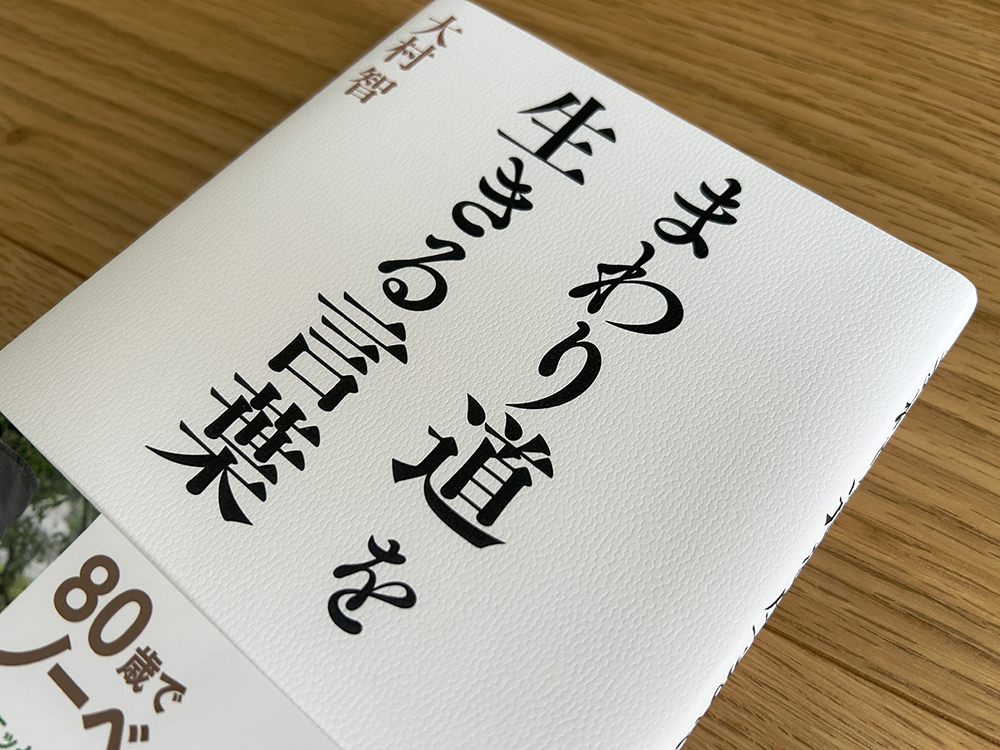 まわり道を
生きる言葉
大村智
80歳で
ノーベ